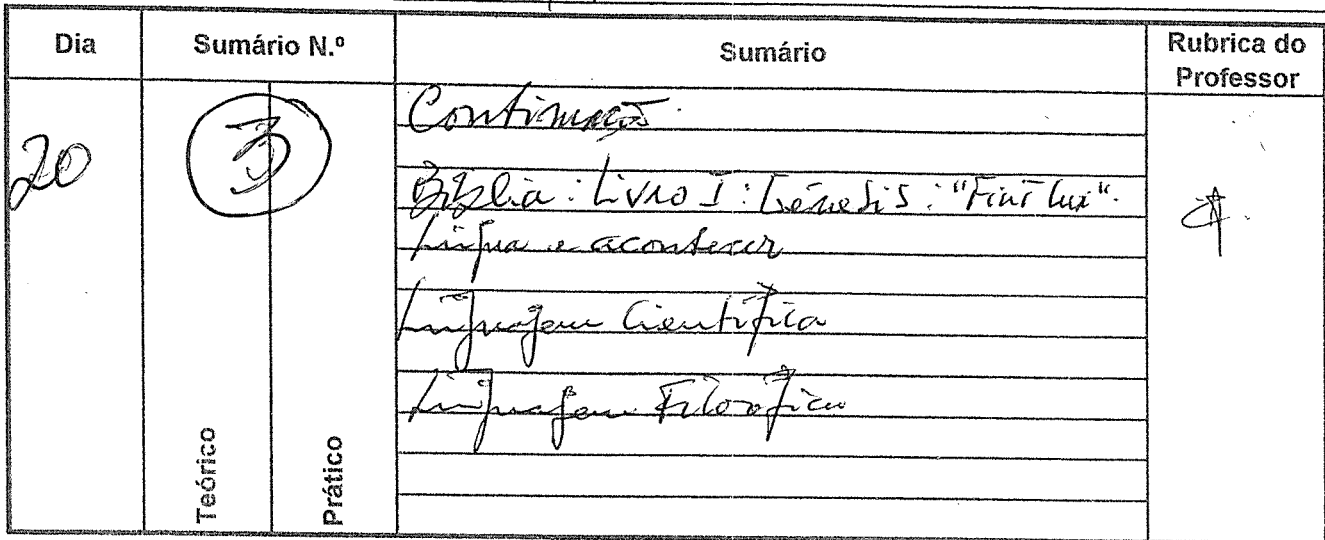 Dia
Sumário N.º
Sumário
Rubrica do
Professor
20
3
Continuação.
Bíblia: Livro I: Génesis: "Fiat lux".
Língua e acontecer
Linguagem Científica
Linguagem Filosófica
Teórico
Prático